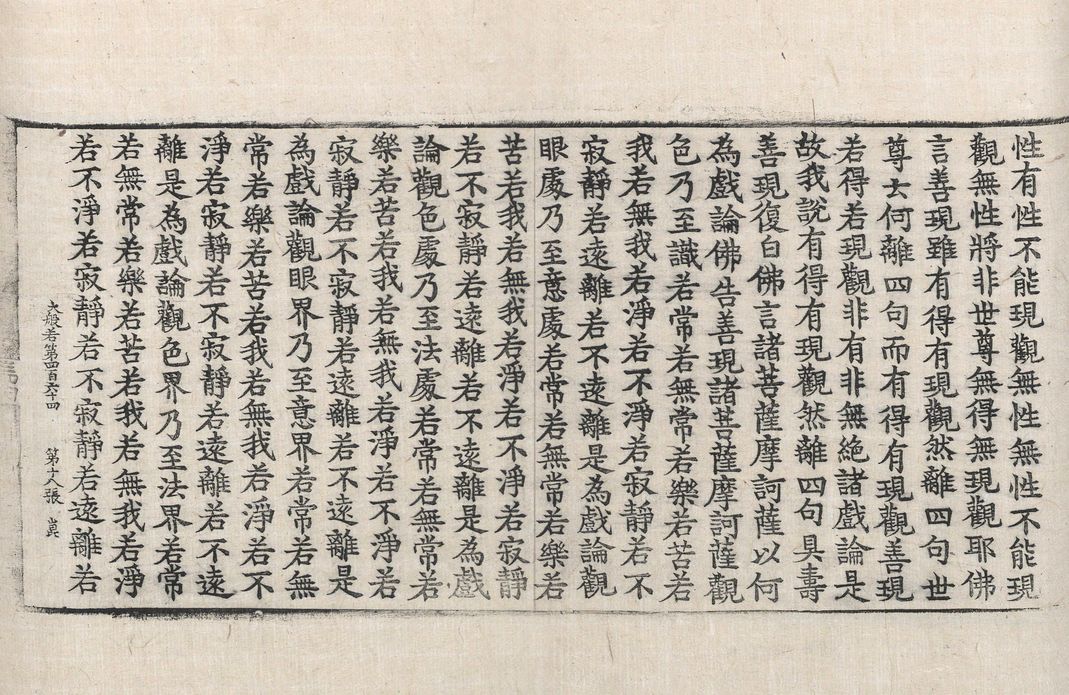 性有性不能現觀無性無性不能現
觀無性將非世尊無得無現觀耶佛
言善現雖有得有現觀然離四句世
尊云何離四句而有得有現觀善現
若得若現觀非有非無絕諸戲論是
故我說有得有現觀然離四句具壽
善現復白佛言諸菩薩摩訶薩以何
為戲論佛告善現諸菩薩摩訶薩觀
色乃至識若常若無常若樂若苦若
我若無我若淨若不淨若寂靜若不
寂靜若遠離若不遠離是為戲論觀
眼處乃至意處若常若無常若樂若
苦若我若無我若淨若不淨若寂靜
若不寂靜若遠離若不遠離是為戲
論觀色處乃至法處若常若無常若
樂若苦若我若無我若淨若不淨若
寂靜若不寂靜若遠離若不遠離是
為戲論觀眼界乃至意界若常若無
常若樂若苦若我若無我若淨若不
淨若寂靜若不寂靜若遠離若不遠
離是為戲論觀色界乃至法界若常
若無常若樂若苦若我若無我若淨
若不淨若寂靜若不寂靜若遠離若
大般若第四百六十四 第十八張 崑